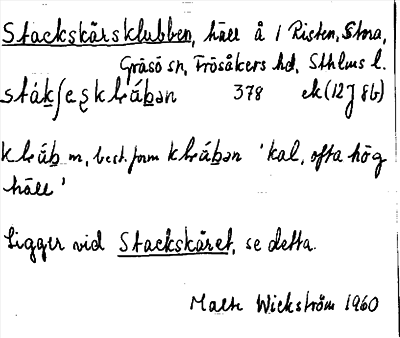 Stackskärsklubben, häll å / Risten, Stora,
Gräsö sn, Frösåkers hd, Sthlms l.
378 ek (12J8b)
m, best. form 'kal, ofta hög
häll'
Ligger vid Stackskäret, se detta.
Malte Wickström 1960